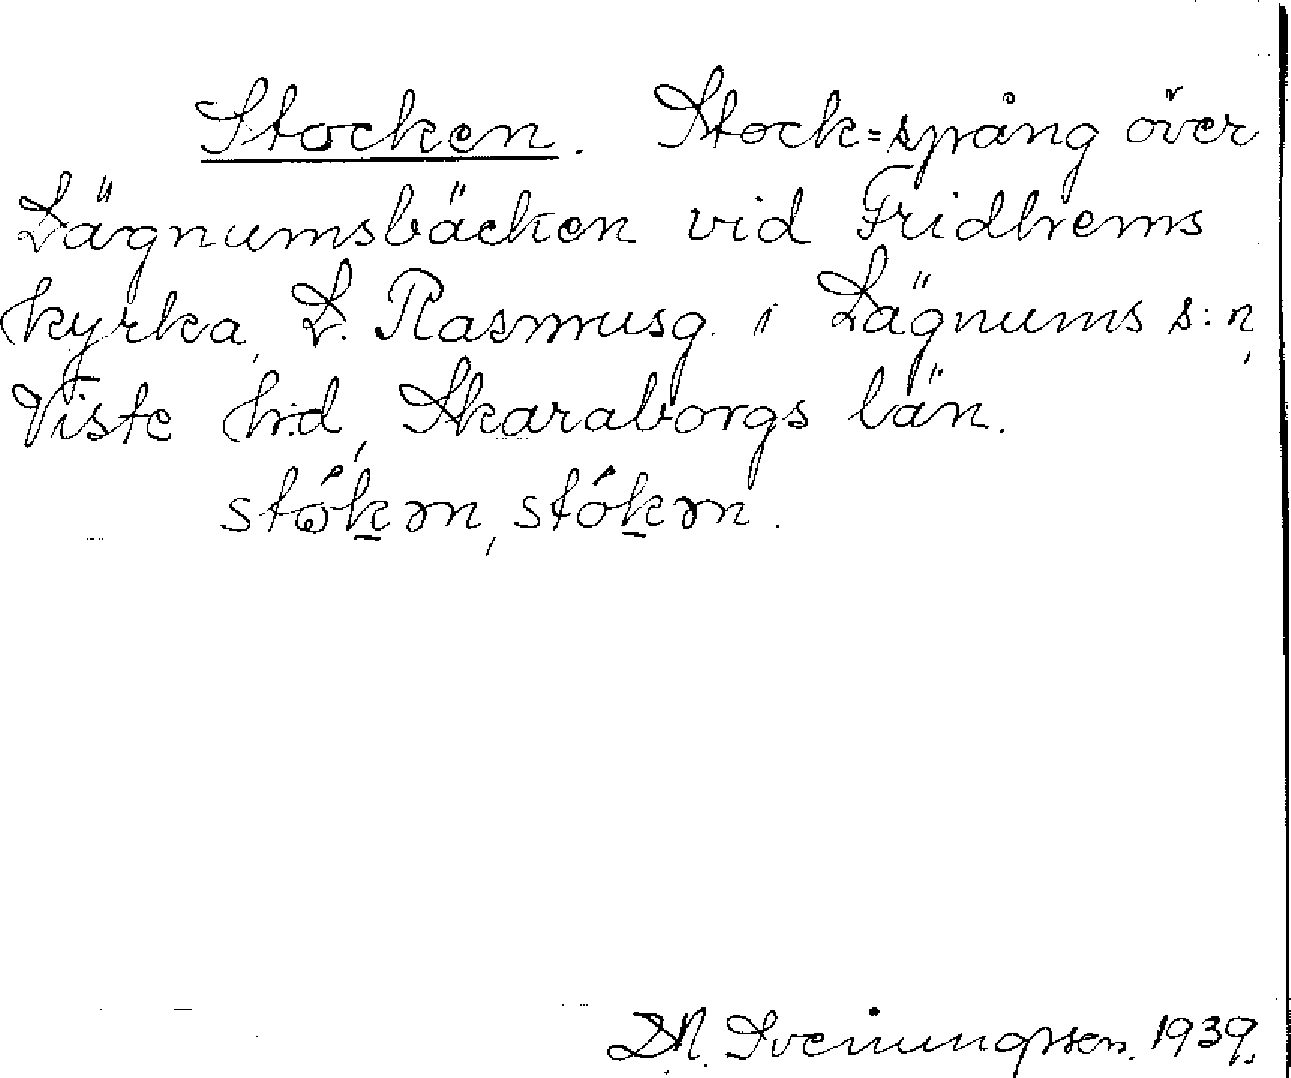 Stocken. Stock=spång över
Lägnumsbäcken vid Fridhems
kyrka, L. Rasmusg. i Lägnums s:n,
Viste h:d, Skaraborgs län.
stókən, stókən.
Sveinungssen. 1939.